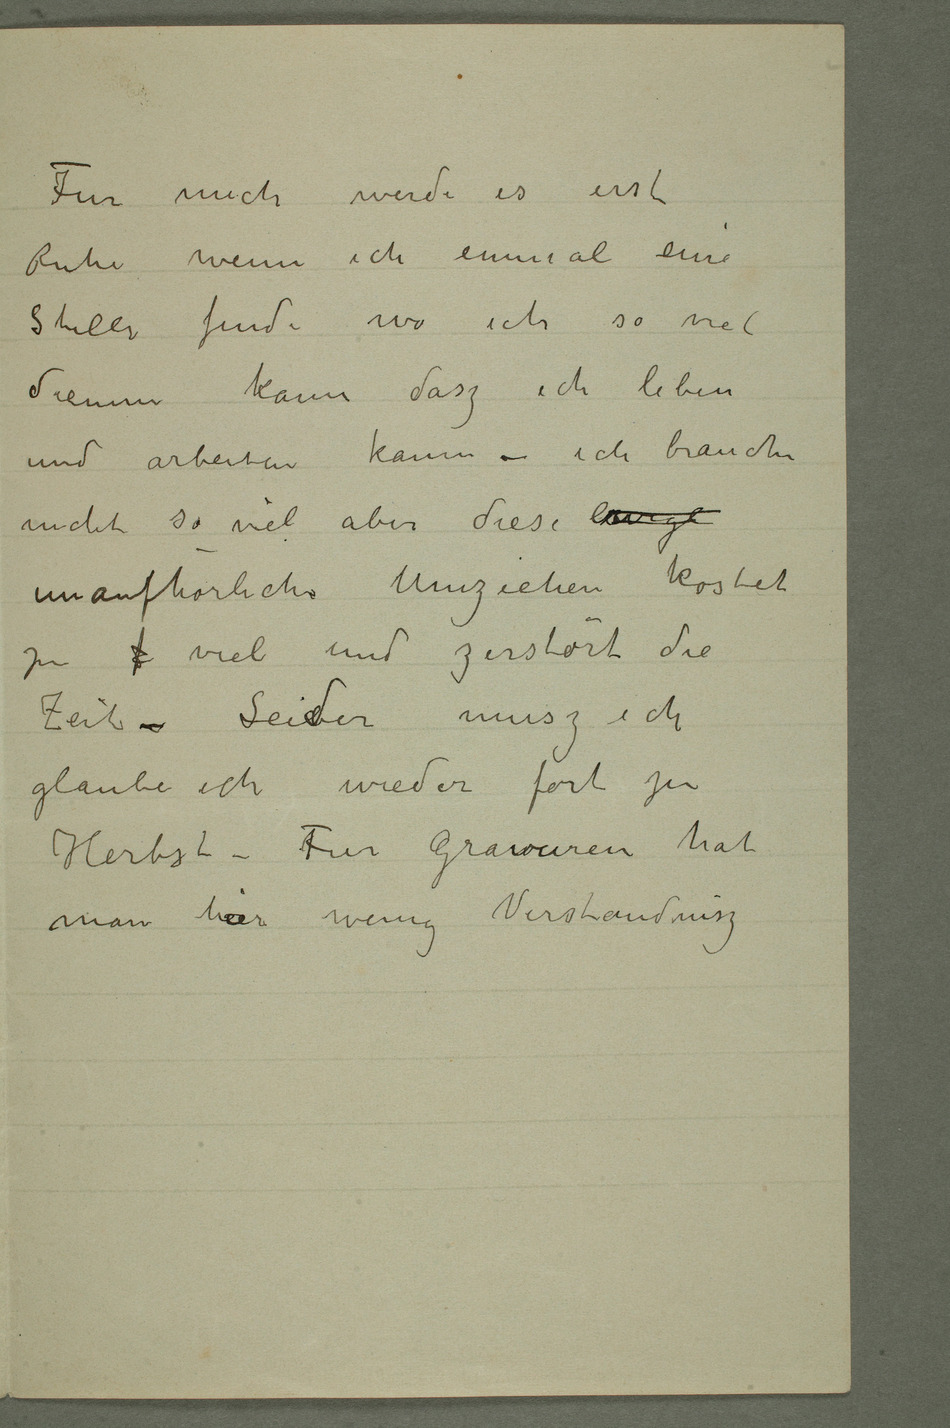 Fur mich werde es erst
Ruhe wenn ich einmal eine
Stelle finde wo ich so viel
dienen kann dasz ich leben
und arbeiten kann – ich brauche
nicht so viel aber diese
unaufhörliche Umziehen kostet
zu viel und zerstört die
Zeit – Leider musz ich
glaube ich wieder fort zu
Herbst – Fur Gravuren hat
man hier wenig Verständnisz